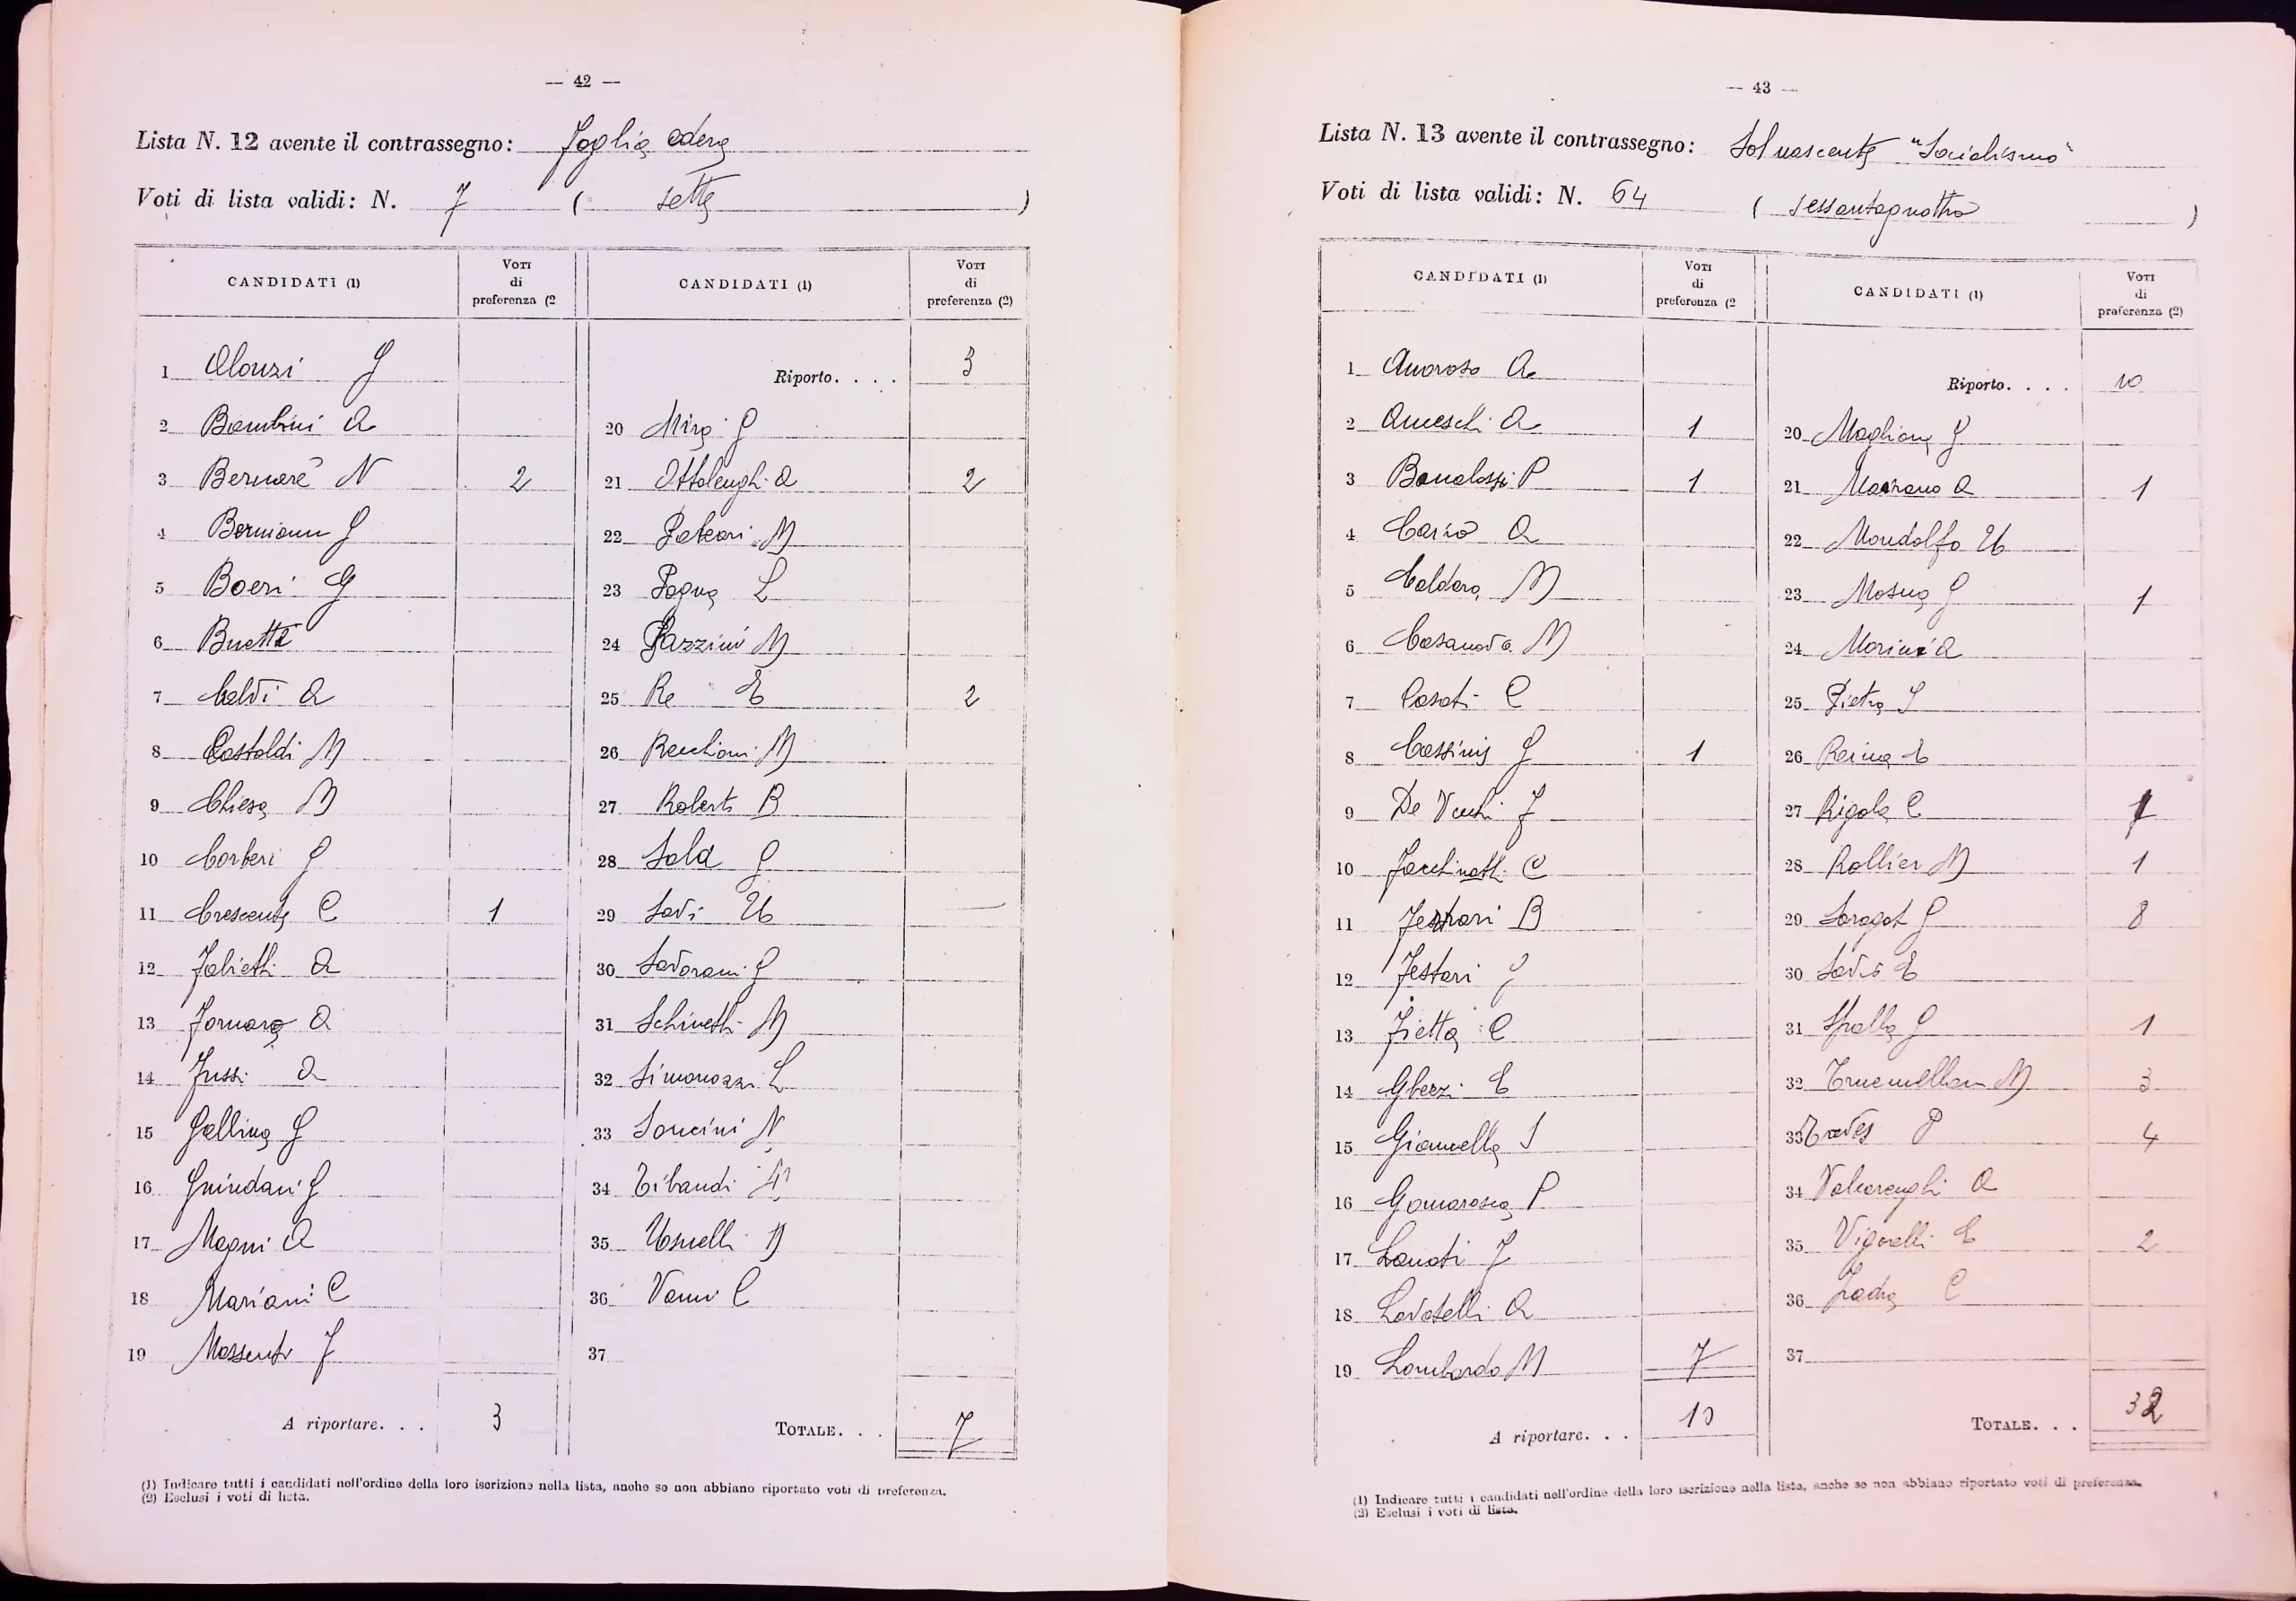 — 42 —
Lista N. 12 avente il contrassegno: Foglia edera
Voti di lista validi: N. 7 ( sette )
CANDIDATI (1) Voti di preferenza (2 CANDIDATI (1) Voti di preferenza (2)
1 Alonzi G
2 Bambini A
3 Bernarè N 2
4 Bormann G
5 Boeri G
6 Buetti
7 Calvi A
8 Castaldi M
9 Chiesa M
10 Corberi G
11 Crescente C 1
12 Falietti A
13 Fornara A
14 Fussi A
15 Gallina G
16 Guindani G
17 Magni A
18 Mariani C
19 Massenti F
A riportare. . . 3
Riporto. . . . 3
20 Mira G
21 Ottolenghi A 2
22 M
23 Pagna L
24 Pazzini M
25 Re E 2
26 Recchioni M
27 Roberti B
28 Sala G
29 Savi U
30 Savorani G
31 Schinetti M
32 Simonazzi L
33 Soncini N
34 Tibaudi
35 Usuelli
36 Vanni C
37
TOTALE. . . 7
(1) Indicare tutti i candidati nell'ordine della loro iscrizione nella lista, anche se non abbiano riportato voti di preferenza.
(2) Esclusi i voti di lista.
— 43 —
Lista N. 13 avente il contrassegno: Sol nascente "Socialismo"
Voti di lista validi: N. 64 ( sessantaquattro )
CANDIDATI (1) Voti di preferenza (2 CANDIDATI (1) Voti di preferenza (2)
1 Amoroso A
2 A 1
3 Bonalossi P 1
4 A
5 Caldara M
6 Casanova M
7 Casati C
8 Cassinis G 1
9 De Vecchi F
10 Facchinetti C
11 B
12 Festari
13 Fietta C
14 Ghezzi E
15 Giannella S
16 Gomarasca P
17 Lanati F
18 Lovatelli A
19 Lombardo M 7
A riportare. . . 10
Riporto. . . . 10
20 Magliana G
21 Marrano A 1
22 Mondolfo U
23 Mosna G 1
24 Morini A
25 Pietra S
26 Reina E
27 Rigola C 1
28 Rollier M 1
29 Saragat G 8
30 Savio E
31 Spalla G 1
32 Tremelloni M 3
33 Treves P 4
34 Valcarenghi A
35 Vigorelli E 2
36 Zadra C
37
TOTALE. . . 32
(1) Indicare tutti i candidati nell'ordine della loro iscrizione nella lista, anche se non abbiano riportato voti di preferenza.
(2) Esclusi i voti di lista.